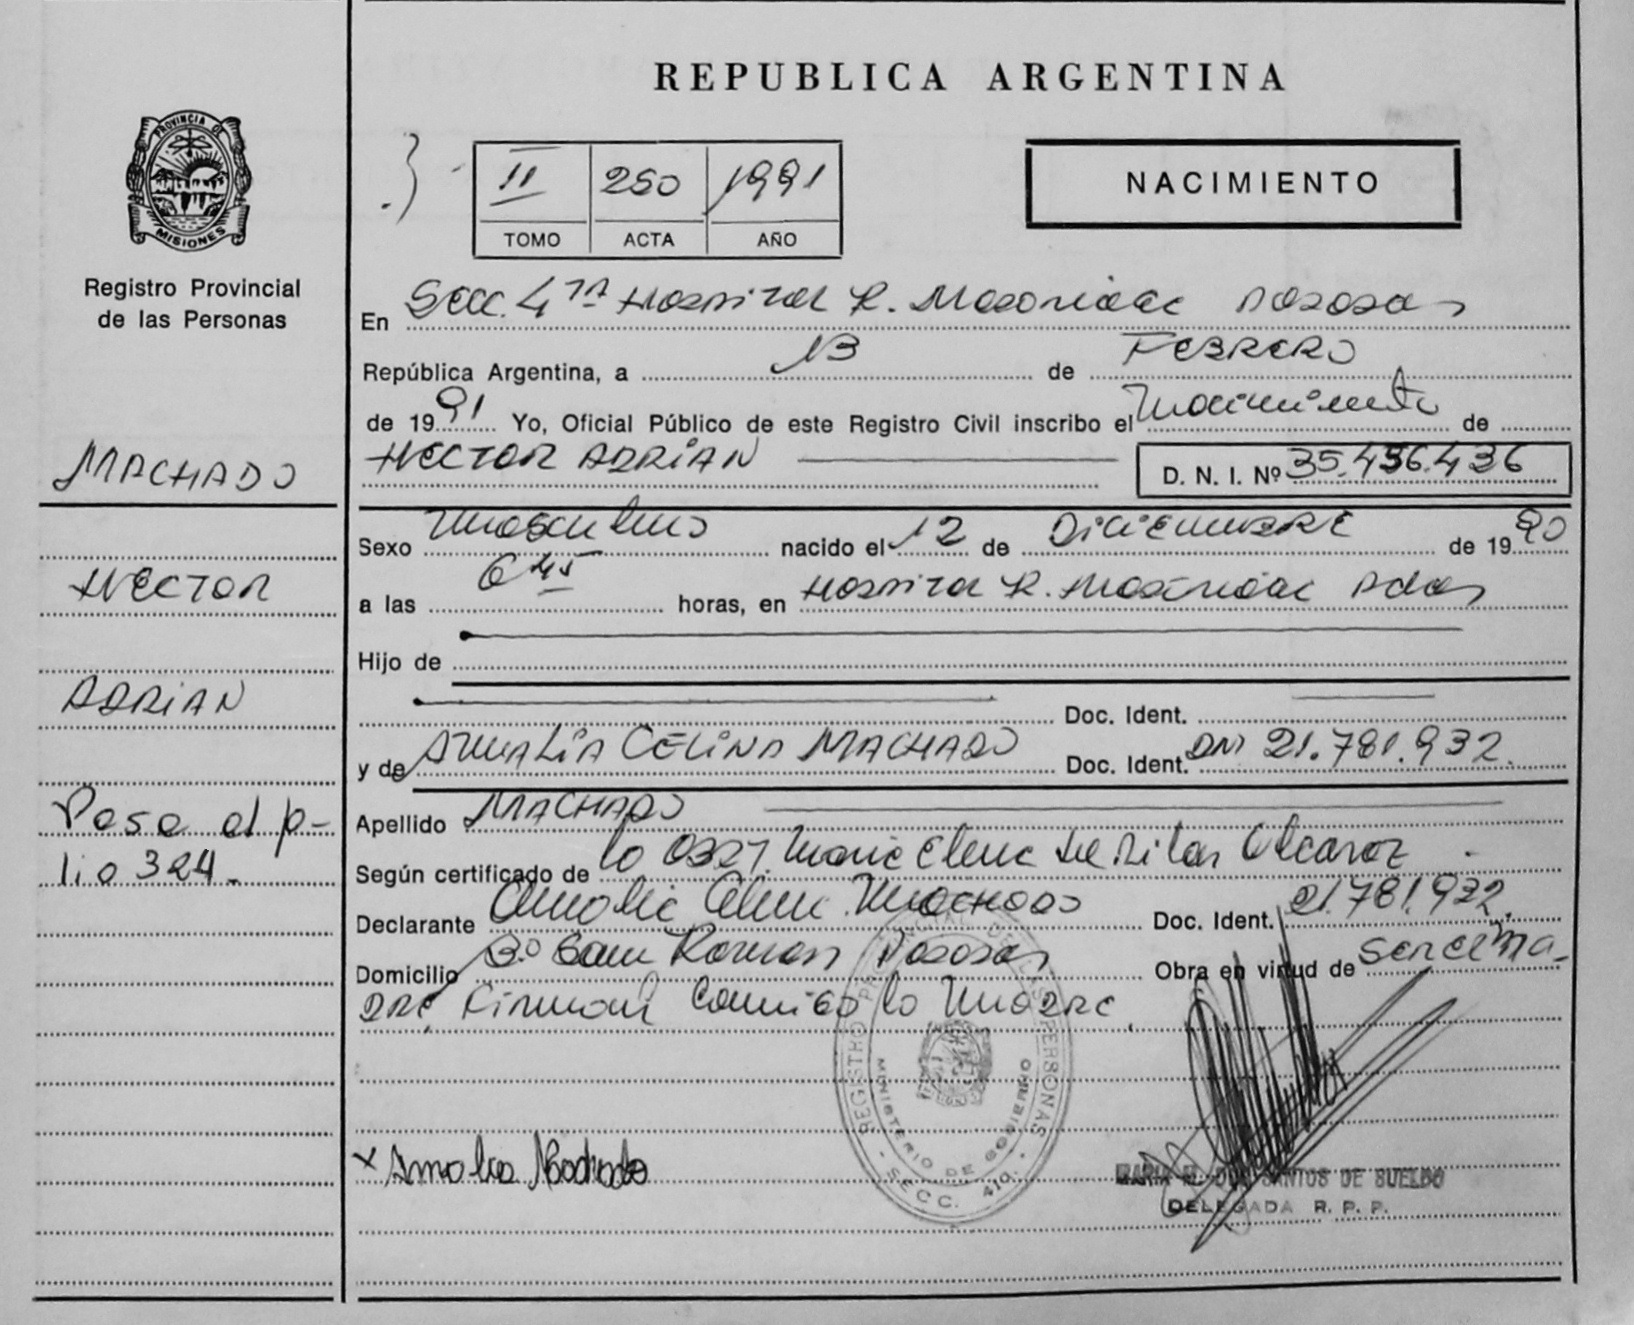 REPUBLICA ARGENTINA
PROVINCIA DE
MISIONES
Registro Provincial
de las Personas
II 250 1991
TOMO ACTA AÑO
NACIMIENTO
En Secc. 4ta Hospital R. Madariaga Posadas
República Argentina, a 13 de FEBRERO
de 1991 Yo, Oficial Público de este Registro Civil inscribo el Nacimiento de
HECTOR ADRIAN D. N. I. Nº 35.456.436
MACHADO
Sexo Masculino nacido el 12 de DICIEMBRE de 1990
HECTOR
a las 6 hs horas, en Hospital R. Madariaga Pdas
Hijo de
ADRIAN
Doc. Ident.
y de AMALIA CELINA MACHADO Doc. Ident. DNI 21.781.932.
Pasa al fo-
lio 324.
Apellido MACHADO
Según certificado de la 0327, Maria Elena del Pilar Alcaraz
Declarante Amalia Celina Machado Doc. Ident. 21.781.932.
Domicilio Bº San Roman Posadas Obra en virtud de ser la Ma-
dre, Firmará conmigo la Madre.
REGISTRO PROVINCIAL DE LAS PERSONAS
MINISTERIO DE GOBIERNO
SECC. 4ta.
x Amalia Machado
MARIA M. DOS SANTOS DE SUELDO
DELEGADA R. P. P.